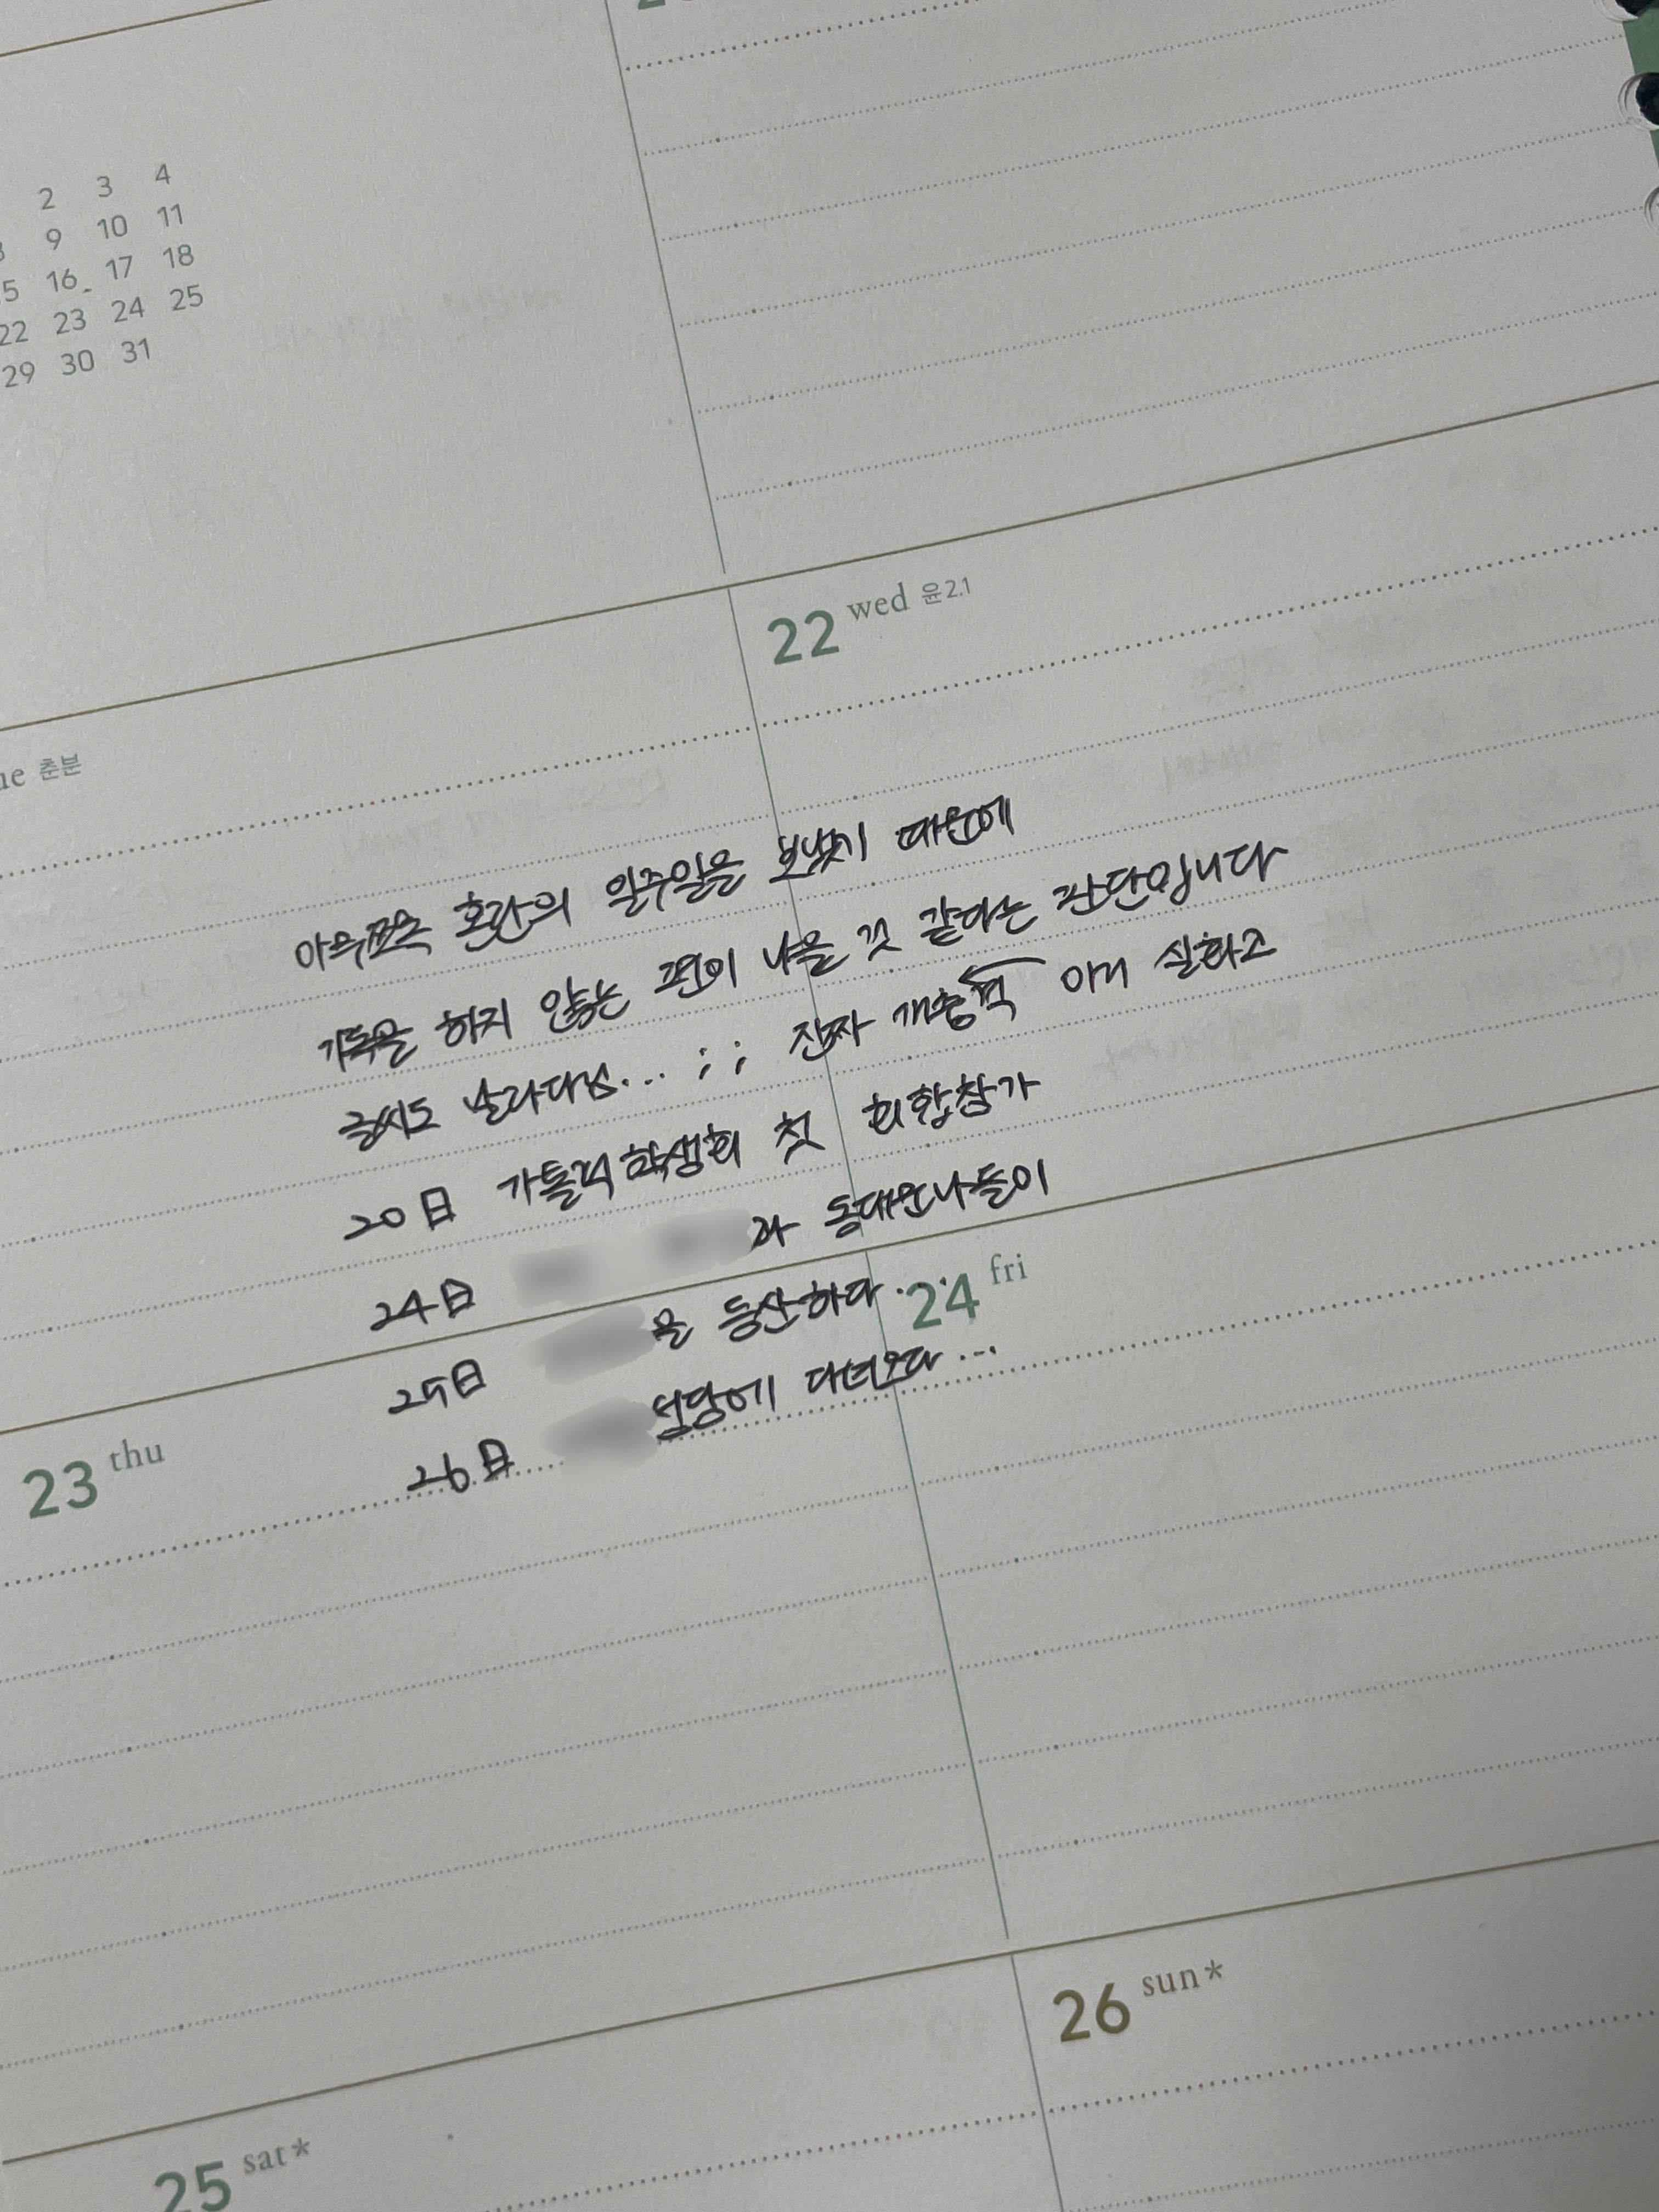 2 3 4
9 10 11
16 17 18
22 23 24 25
29 30 31
22 wed 윤2.1
춘분
아무쪼록 혼란의 일주일을 보냈기 때문에
기록을 하지 않는 편이 나을 것 같다는 판단입니다
글씨도 날라다님...;; 진짜 개충격 아니 실화고
20日 가톨릭학생회 첫 회합참가
24日 과 동대문나들이
25日 을 등산하다..
26日 성당에 다녀오다...
23 thu
24 fri
25 sat*
26 sun*